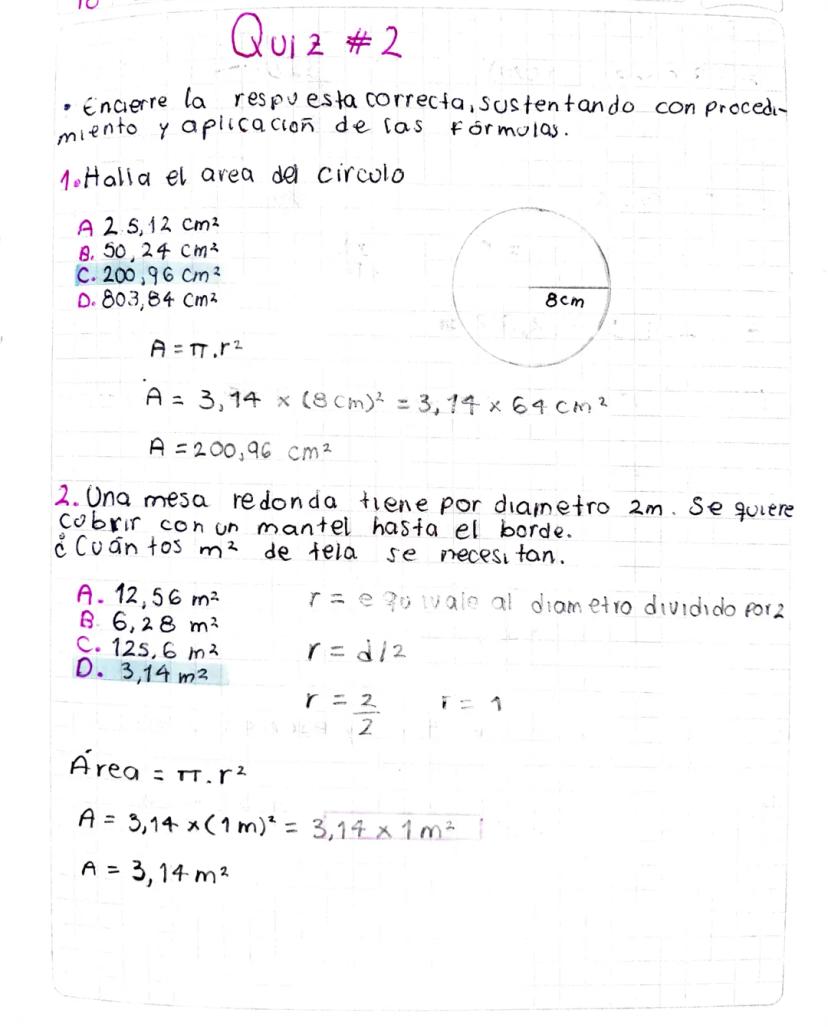 10
Quiz #2
• Encierre la respuesta correcta, sustentando con procedi-
miento y aplicación de las fórmulas.
1. Halla el area del circulo
A 25,12 cm²
B. 50,24 cm²
C. 200,96 cm²
D. 803,84 cm²
8cm
A = π.r²
A = 3,14 x (8cm)² = 3,14 x 64 cm²
A = 200,96 cm²
2. Una mesa redonda tiene por diametro 2m. Se quiere
cubrir con un mantel hasta el borde.
¿Cuántos m² de tela se necesitan.
A. 12,56 m²
B. 6,28 m²
C. 125,6 m²
D. 3,14 m²
r = equivale al diametro dividido por 2
r = d/2
r = 2/2 r = 1
Área = π.r²
A = 3,14 x (1m)² = 3,14 x 1m²
A = 3,14 m²